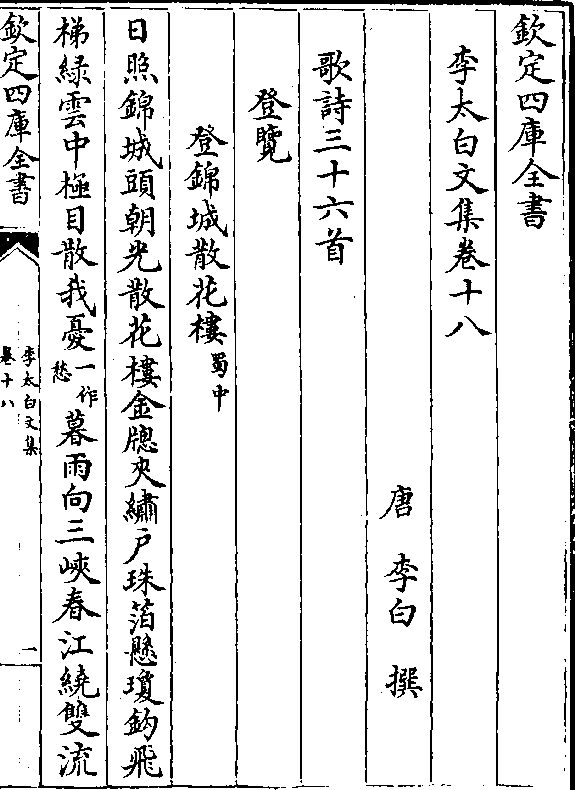 欽定四庫全書
李太白文集卷十八
唐 李白 撰
歌詩三十六首
登覽
登錦城散花樓蜀中
日照錦城頭朝光散花樓金牕夾繡戶珠箔懸瓊鈎飛
梯緑雲中極目散我憂一作愁暮雨向三峽春江繞雙流
欽定四庫全書
李太白文集
卷十八
一